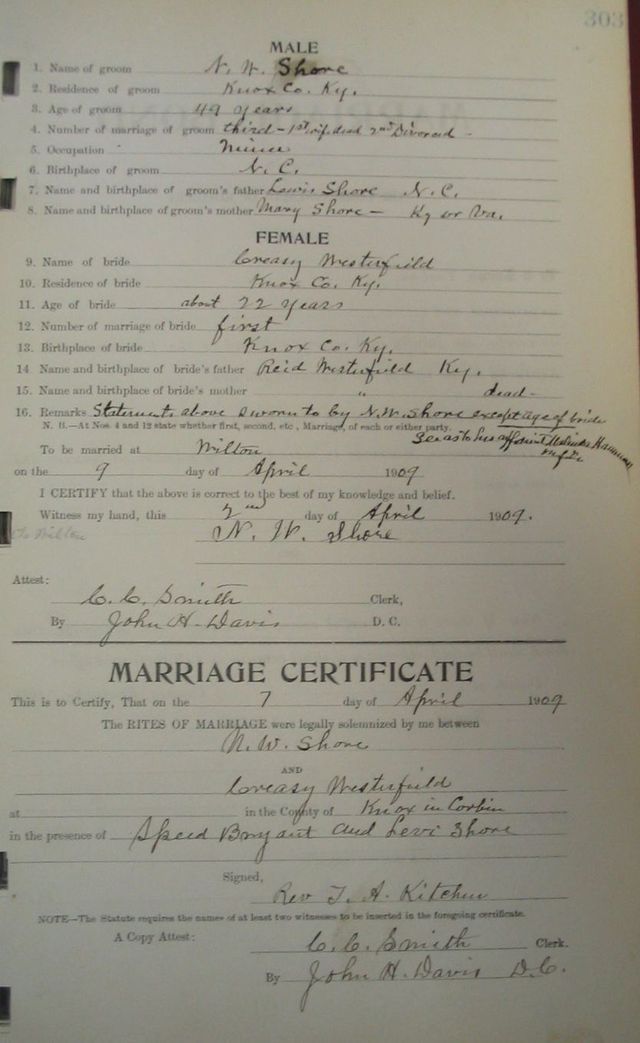 303
MALE
1. Name of groom N. W. Shore
2. Residence of groom Knox Co. Ky.
3. Age of groom 49 years
4. Number of marriage of groom third - 1st wife dead 2nd Divorced -
5. Occupation Miner
6. Birthplace of groom N. C.
7. Name and birthplace of groom's father Lewis Shore N. C.
8. Name and birthplace of groom's mother Mary Shore - Ky or Va.
FEMALE
9. Name of bride Creasy Westerfield
10. Residence of bride Knox Co. Ky.
11. Age of bride about 22 years
12. Number of marriage of bride first
13. Birthplace of bride Knox Co. Ky.
14. Name and birthplace of bride's father Reid Westerfield Ky.
15. Name and birthplace of bride's mother " dead -
16. Remarks Statements above sworn to by N. W. Shore except age of bride
N. B.—At Nos. 4 and 12 state whether first, second, etc., Marriage, of each or either party.
To be married at Wilton
on the 9 day of April 1909
I CERTIFY that the above is correct to the best of my knowledge and belief.
Witness my hand, this 2nd day of April 1909.
N. W. Shore
Attest:
C. C. Smith Clerk,
By John H. Davis D. C.
MARRIAGE CERTIFICATE
This is to Certify, That on the 7 day of April 1909
The RITES OF MARRIAGE were legally solemnized by me between
N. W. Shore
AND
Creasy Westerfield
at in the County of Knox in Corbin
in the presence of Speed Bryant and Levi Shore
Signed,
Rev T. A. Kitchen
NOTE—The Statute requires the names of at least two witnesses to be inserted in the foregoing certificate.
A Copy Attest: C. C. Smith Clerk.
By John H. Davis D. C.